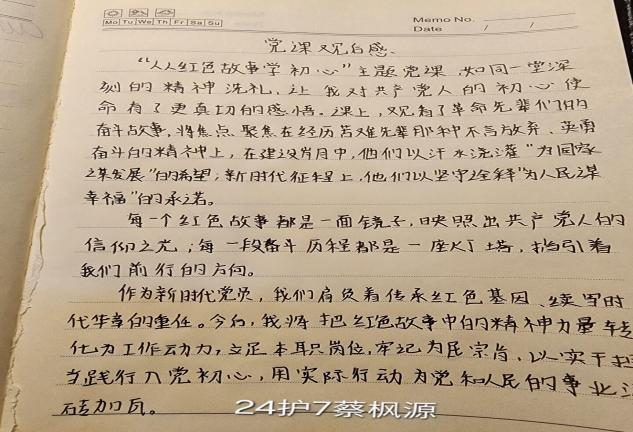 Memo No.
Mo Tu We Th Fr Sa Su
Date / /
党课观后感.
“从红色故事学初心”主题党课,如同一堂深
刻的精神洗礼,让我对共产党人的初心使
命有了更真切的感悟。课上,观看了革命先辈们的
奋斗故事,将焦点聚焦在经历苦难先辈那种不言放弃、英勇
奋斗的精神上,在建设岁月中,他们以汗水浇灌“为国家
谋发展”的希望;新时代征程上,他们以坚守诠释“为人民谋
幸福”的承诺。
每一个红色故事都是一面镜子,映照出共产党人的
信仰之光;每一段奋斗历程都是一座灯塔,指引着
我们前行的方向。
作为新时代党员,我们肩负着传承红色基因、续写时
代华章的重任。今后,我将把红色故事中的精神力量转
化为工作动力,立足本职岗位,牢记为民宗旨,以实干担
当践行入党初心,用实际行动为党和人民的事业
砖加瓦。
24护7蔡枫源